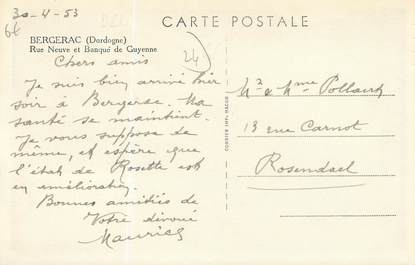 30-4-53
CARTE POSTALE
66
BERGERAC (Dordogne)
Rue Neuve et Banque de Guyenne
24
Chers amis
Je suis bien arrivé hier
soir à Bergerac. Ma
santé se maintient.
Je vous suppose de
même, et espère que
l'état de Rosette est
en amélioration.
Bonnes amitiés de
Votre dévoué
Maurice
Mr & Mme
13 rue Carnot
Rosendael